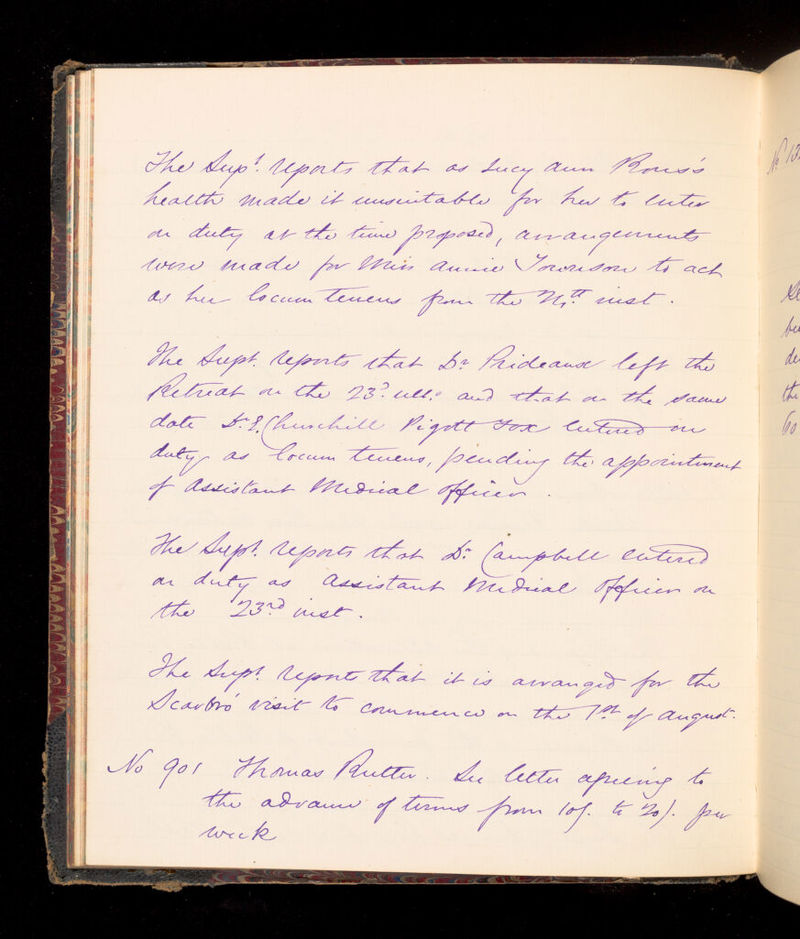 The Supt. reports that as Lucy Ann Rous's
health made it unsuitable for her to enter
on duty at the time proposed, arrangements
were made for Miss Annie Townson to act
as her locum tenens from the inst.
The Supt. reports that Dr. Prideaux left the
Retreat on the 23rd. ulto and that on the same
date Dr. E. Churchill Pigott Fox entered on
duty as locum tenens, pending the appointment
of Assistant Medical Officer.
The Supt. reports that Dr. Campbell entered
on duty as Assistant Medical Officer on
the 23rd inst.
The Supt. reports that it is arranged for the
Scarbro' visit to commence on the 1st of August.
No 901 Thomas Rutter. See letter agreeing to
the advance of terms from 10/. to 20/. per
week
No 13
the
60